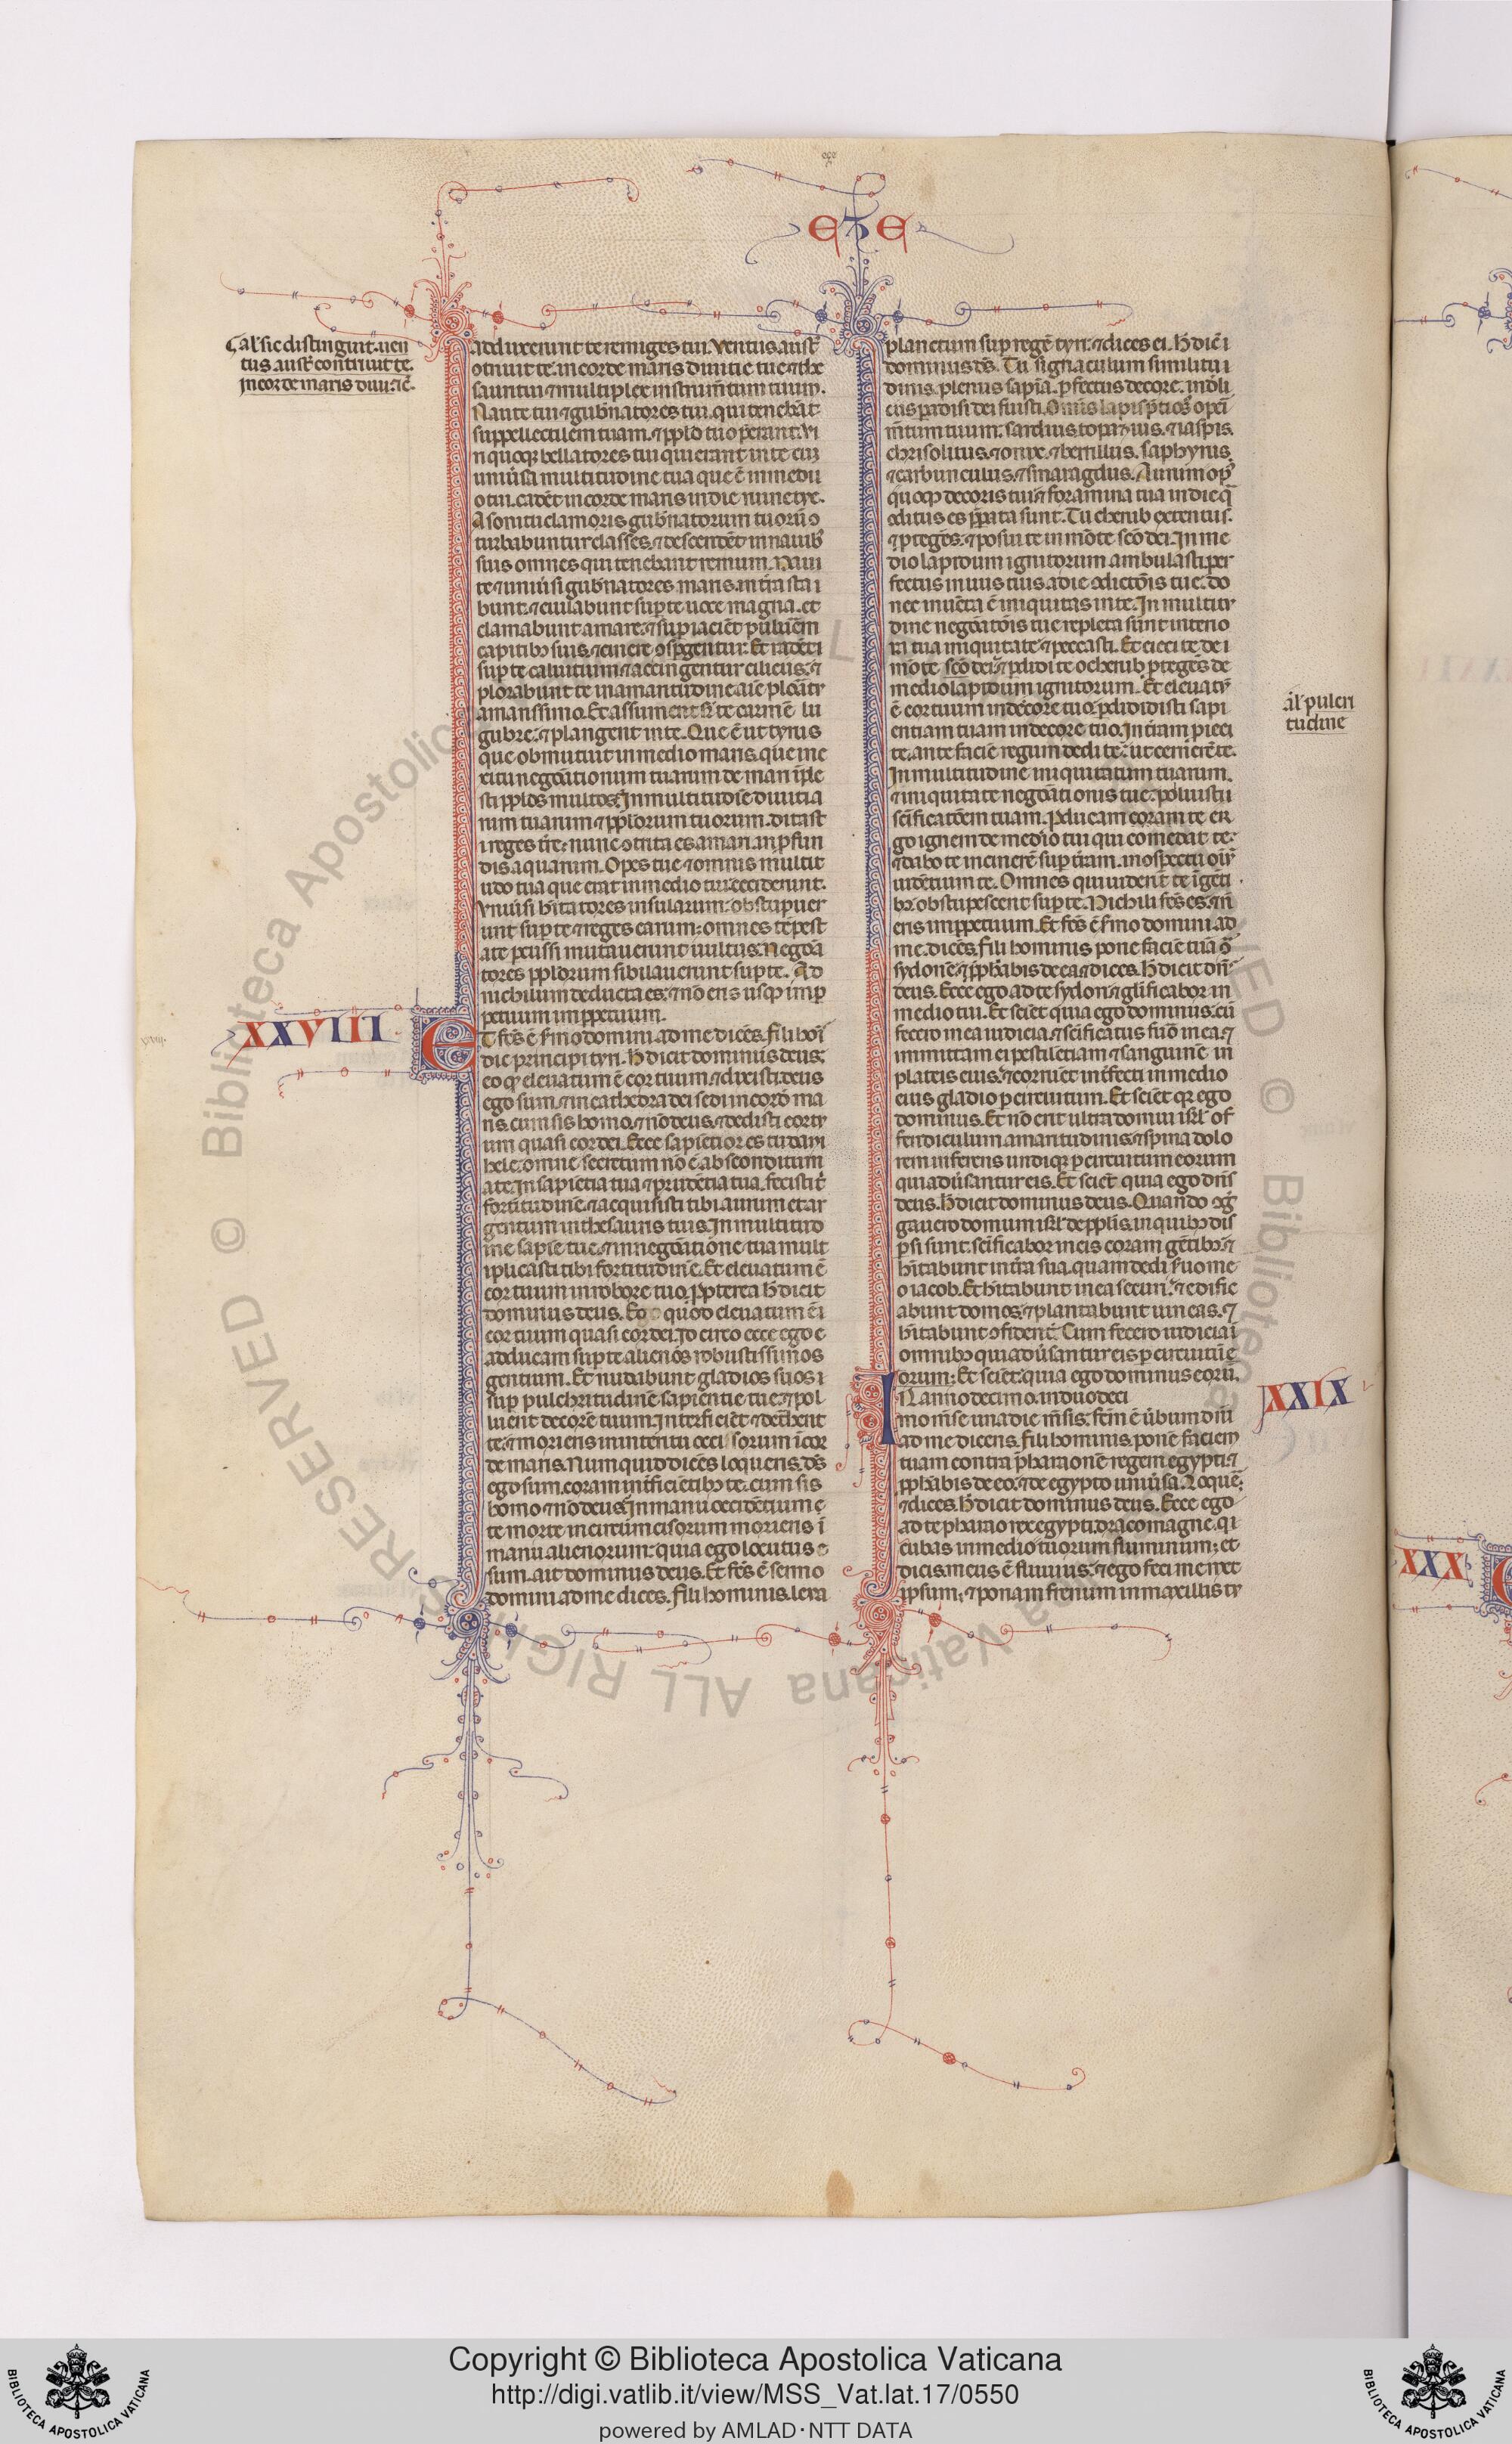 EZE
al̄ sic distinguit. uen
tus austr̄ contriuit te.
in corde maris diuicīe.
adduxerunt te remiges tui. Ventus austr̄
ↄtriuit te. in corde maris diuitie tue ⁊ the
sauri tui ⁊ multiplex instrum̄tum tuum.
Naute tui ⁊ gub̄natores tui. qui tenebāt
suppellectilem tuam. ⁊ pp̄lo tuo p̄erant. Vi
ri quoq; bellatores tui qui erant in te cū
uniūsa multitudine tua que ē in medi
o tui. cadēt in corde maris in die ruine tue.
A sonitu clamoris gub̄natorum tuoꝝ ↄ
turbabuntur classes. ⁊ descendēt in nauib;
suis omnes qui tenebant remum. Naut
te ⁊ uniūsi gub̄natores maris. in tr̄a sta
bunt. ⁊ eiulabunt sup te uoce magna. et
clamabunt amare. ⁊ sup iaciēt puluēm
capitib; suis. ⁊ cinere ↄspgentur. Et radēt
sup te caluitium ⁊ accingentur ciliciis. ⁊
plorabunt te in amaritudine aīe ploātu
amarissimo. Et assument sr̄ te carmē lu
gubre. ⁊ plangent in te. Que ē ut tyrus
que obmutuit in medio maris. que in e
xitu negōationum tuarum de mari īple
sti pp̄los multos. In multitudīe diuitia
rum tuarum ⁊ pp̄lorum tuorum. ditast
i reges tr̄e. nunc ↄtrita es a mari. in pfun
dis aquarum. Opes tue ⁊ omnis multit
udo tua que erat in medio tui. ceciderunt.
Vniūsi hītatores insularum. obstupuer
unt sup te. ⁊ reges earum. omnes tēpest
ate pcussi mutauerunt uultus. Negōa
tores pp̄lorum sibilauerunt sup te. Ad
nichilum deducta es. ⁊ nō eris usq; imp
petuum in ppetuum.
XXVIII
ET fc̄s ē sermo domini ad me dicēs. Fili hoīs
dic principi tyri. H̄ dicit dominus deus.
eo q̄ eleuatum ē cor tuum. ⁊ dixisti. deus
ego sum. ⁊ in cathedra dei sedi in corde ma
ris. cum sis homo. ⁊ nō deus. ⁊ dedisti cor tu
um quasi cor dei. Ecce sapiētior es tu dani
hele. omne secretum nō ē absconditum
a te. In sapiētia tua ⁊ prudētia tua. fecisti t̄
fortitudinē. ⁊ acquisisti tibi aurum et ar
gentum in thesauris tuis. In multitud
ine sapīe tue. ⁊ in negōatione tua mult
iplicasti tibi fortitudinē. Et eleuatum ē
cor tuum in robore tuo. ppterea h̄ dicit
dominus deus. Eo quod eleuatum ē
cor tuum quasi cor dei. Idcirco ecce ego
adducam sup te alienos robustissimos
gentium. Et nudabunt gladios suos
sup pulchritudinē sapientie tue. ⁊ pol
luent decorē tuum. Interficiēt ⁊ det̄hent
te. ⁊ morieris in interitu occisorum ī cor
de maris. Numquid dicēs loqueris. dš
ego sum. coram int̄ficiētib; te. cum sis
homo ⁊ nō deus. In manu occidētium
te morte incircūmcisorum morieris ī
manu alienorum. quia ego locutus
sum. ait dominus deus. Et fc̄s ē sermo
domini ad me dicēs. Fili hominis. leua
planctum sup regē tyri. ⁊ dices ei. H̄ dic̄
dominus dš. Tu signaculum similitu
dinis. plenus sapīa. pfectus decore. in dēli
ciis padisi dei fuisti. Omīs lapis p̄tios; opi
m̄tum tuum. sardius. topazius. ⁊ iaspis.
chrisolitus. ⁊ onix. ⁊ berillus. saphyrus.
⁊ carbunculus. ⁊ smaragdus. Aurum op;
quoq; decoris tui. ⁊ foramina tua in die q̄
ↄditus es pp̄ata sunt. Tu cherub extentus.
⁊ ptegēs. ⁊ posui te in mōte scō dei. In me
dio lapidum ignitorum ambulasti. per
fectus in uiis tuis. a die ↄditōis tue. do
nec inuēta ē iniquitas in te. In multitu
dine negōatōis tue repleta sunt interio
ra tua iniquitate. ⁊ peccasti. Et eieci te de
mōte scō dei. ⁊ pdidi te o cherub ptegēs de
medio lapidum ignitorum. Et eleuatū
ē cor tuum in decore tuo. pdidisti sapi
entiam tuam in decore tuo. In tr̄am pieci
te. ante faciē regum dedi te. ut cernerēt te.
In multitudine iniquitatum tuarum.
⁊ iniquitate negōationis tue. polluisti
sc̄ificatōem tuam. pducam coram te er
go ignem de medio tui qui comedat te.
⁊ dabo te in cinerē sup tr̄am. in ↄspectu oīm
uidētium te. Omnes qui uiderīt te ī gēti
b; obstupescent sup te. Nichili fc̄s es. ⁊ n̄
eris in ppetuum. Et fc̄s ē s̄mo domini ad
me. dicēs. Fili hominis pone faciē tuā ↄ̄
sydonē. ⁊ pp̄habis de ea. ⁊ dices. H̄ dicit dn̄s
deus. Ecce ego ad te sydon. ⁊ gl̄ificabor in
medio tui. Et sciēt quia ego dominus. cū
fecero in ea iudicia. ⁊ sc̄ificatus fuō in ea. ⁊
inmittam ei pestilētiam ⁊ sanguinē in
plateis eius. ⁊ corruēt int̄fecti in medio
eius gladio p circuitum. Et sciēt q̄ ego
dominus. Et nō erit ultra domui isrl̄ of
fendiculum amaritudinis. ⁊ spina dolo
rem inferens undiq; p circuitum eorum
qui adūsantur eis. Et sciēt quia ego dn̄s
deus. H̄ dicit dominus deus. Quando ↄg̃
gauero domum isrl̄ de pp̄lis. in quib; dis
psi sunt. sc̄ificabor in eis coram gētib;. ⁊
hītabunt in tr̄a sua. quam dedi s̄uo me
o iacob. Et hītabunt in ea securi. ⁊ edific
abunt domos. ⁊ plantabunt uineas. ⁊
hītabunt ↄfident̄. Cum fecero iudicia ī
omnib; qui adūsantur eis p circuitū e
orum. Et sciēt. quia ego dominus eorū.
XXIX
IN anno decimo. in duodeci
mo mēse una die mēsis. fc̄m ē ūbum dn̄i
ad me dicens. Fili hominis. pone faciem
tuam contra pharaonē regem egypti. ⁊
pp̄habis de eo. ⁊ de egypto uniūsa. Loquē.
⁊ dices. H̄ dicit dominus deus. Ecce ego
ad te pharao rex egypti. draco magne. qi
cubas in medio tuorum fluminum. et
dicis. meus ē fluuius. ⁊ ego feci memet
ipsum. ⁊ ponam frenum in maxillis tu
al̄ pulcri
tudine
XXX
Copyright © Biblioteca Apostolica Vaticana
http://digi.vatlib.it/view/MSS_Vat.lat.17/0550
powered by AMLAD·NTT DATA
BIBLIOTECA APOSTOLICA VATICANA
BIBLIOTECA APOSTOLICA VATICANA
© Biblioteca Apostolica Vaticana ALL RIGHTS RESERVED